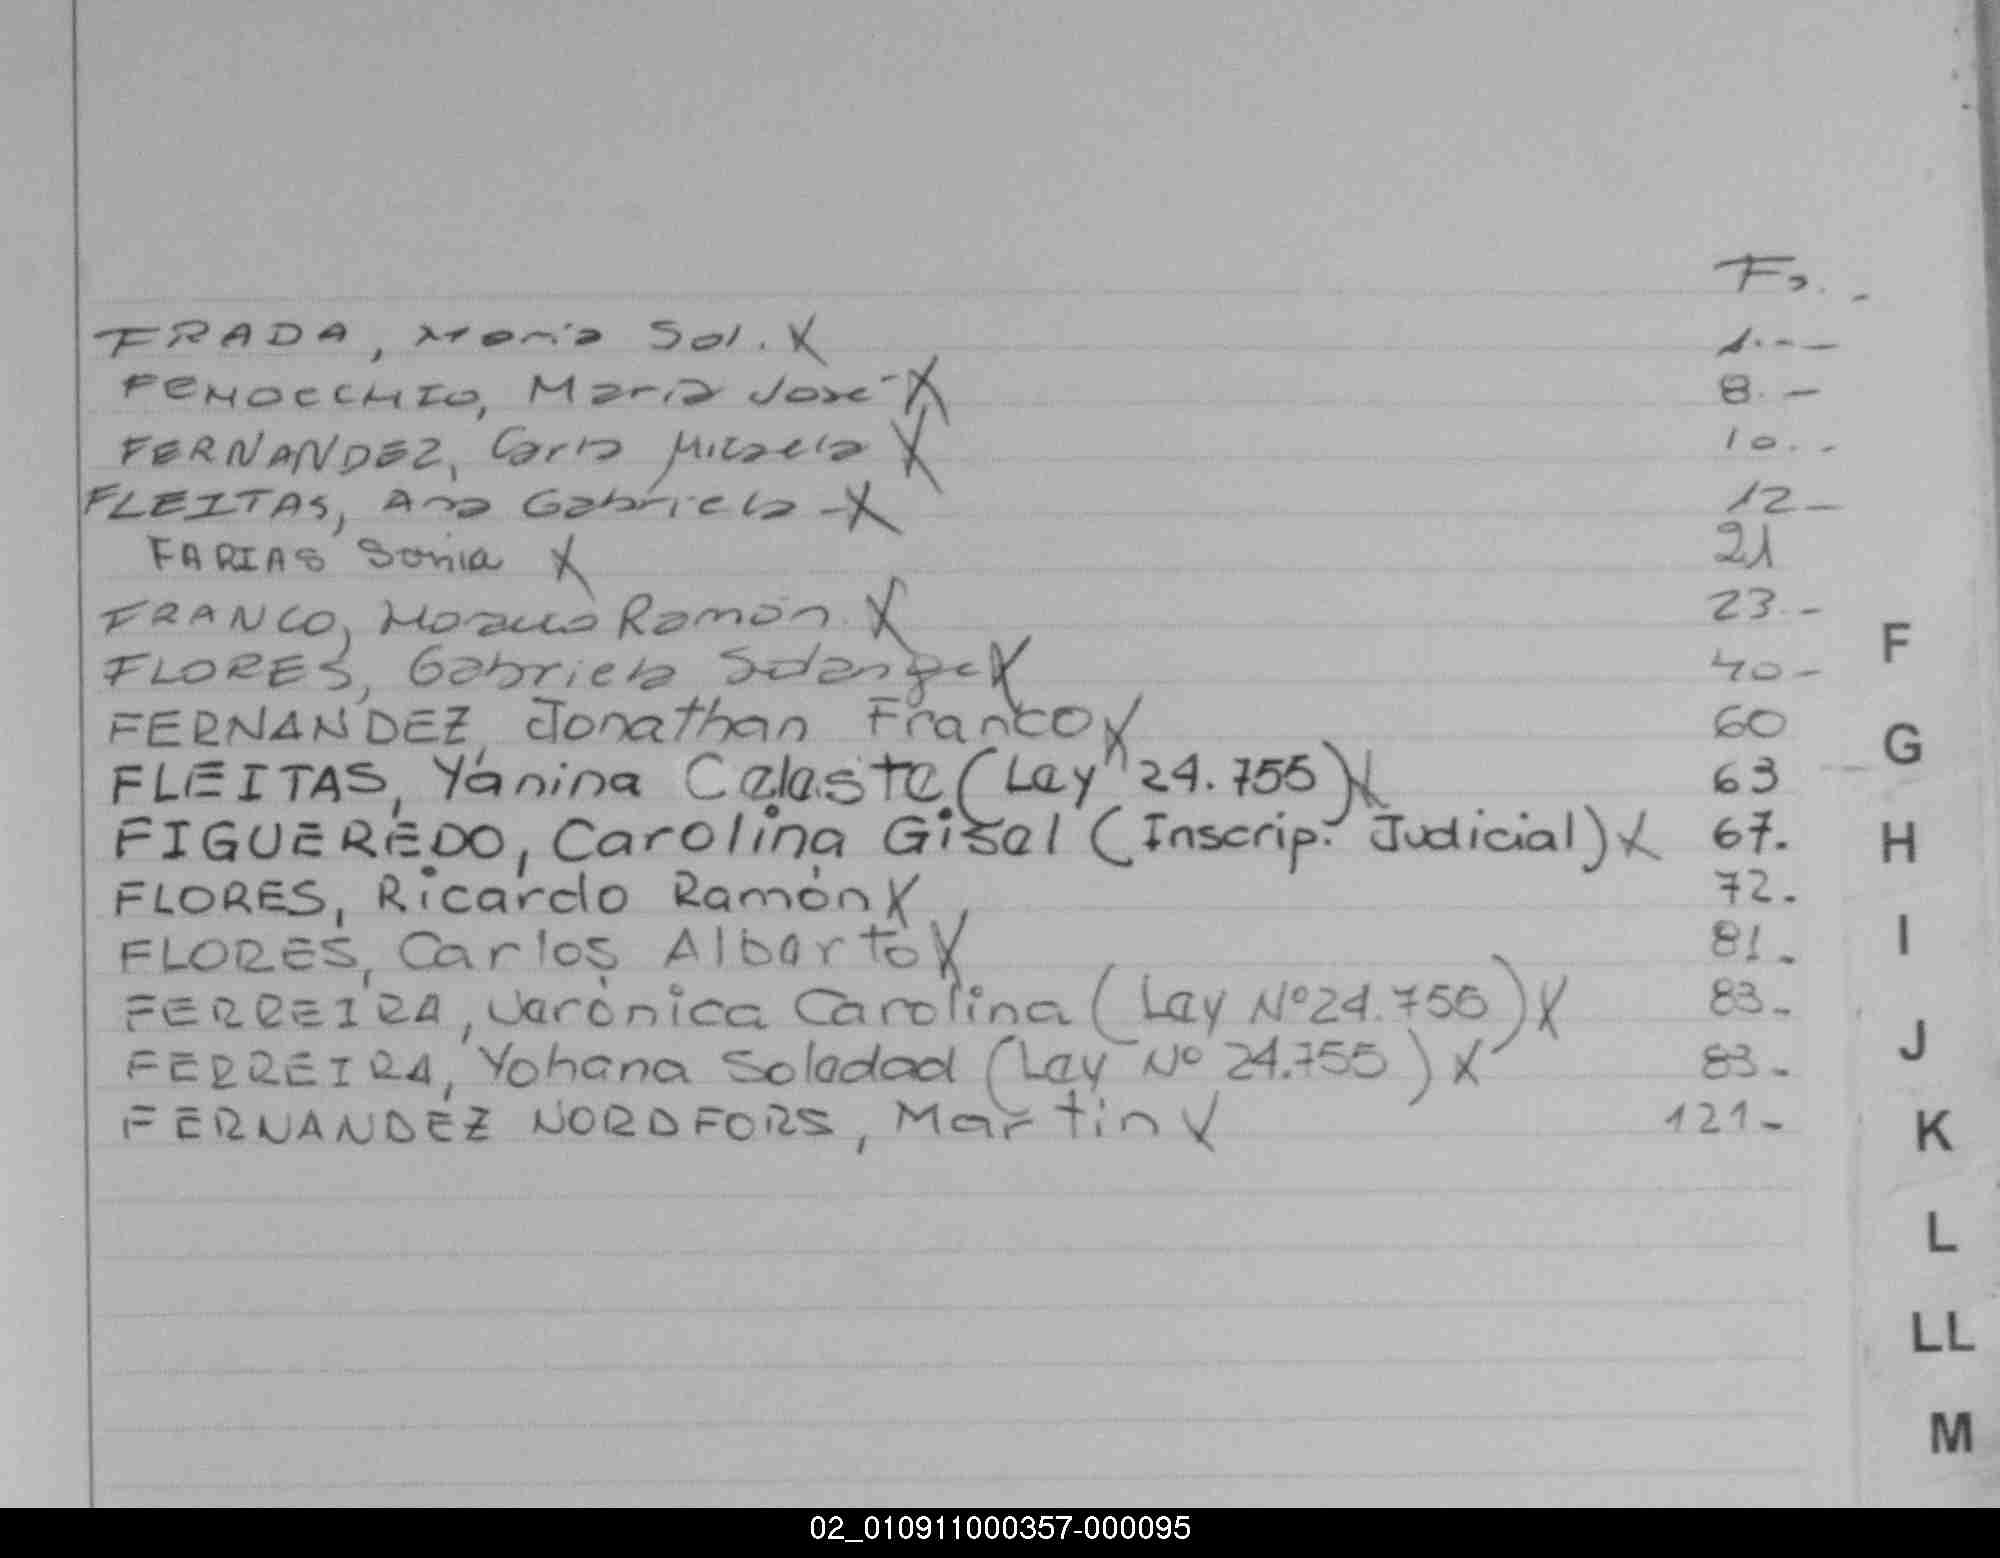 Fo.-
FRADA, Maria Sol. X 1.--
FENOCCHIO, Maria José-X 8.-
FERNANDEZ, Carla Micaela X 10.-
FLEITAS, Ana Gabriela -X 12-
FARIAS Sonia X 21
FRANCO, Ramón. X 23.-
FLORES, Gabriela Solange X 40-
FERNANDEZ, Jonathan Franco X 60
FLEITAS, Yanina Celeste (Ley 24.755) X 63
FIGUEREDO, Carolina Gisel (Inscrip. Judicial) X 67.
FLORES, Ricardo Ramón X 72.
FLORES, Carlos Alberto X 81.
FERREIRA, Verónica Carolina (Ley Nº 24.755) X 83.
FERREIRA, Yohana Soledad (Ley Nº 24.755) X 83.
FERNANDEZ NORDFORS, Martin X 121-
F
G
H
I
J
K
L
LL
M
02_010911000357-000095